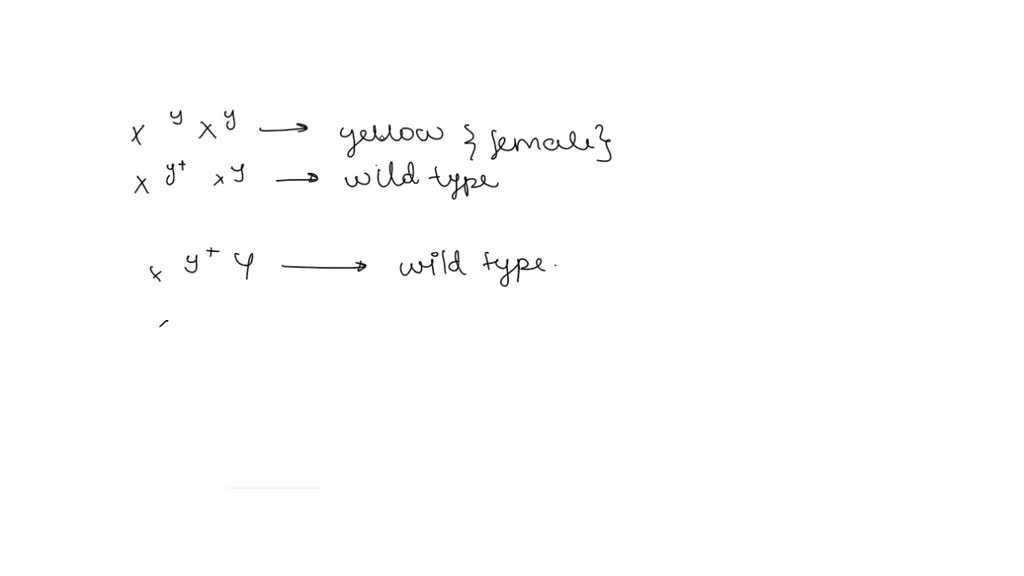 x y x y → yellow {female}
x y+ x y → wild type
x y+ y → wild type.